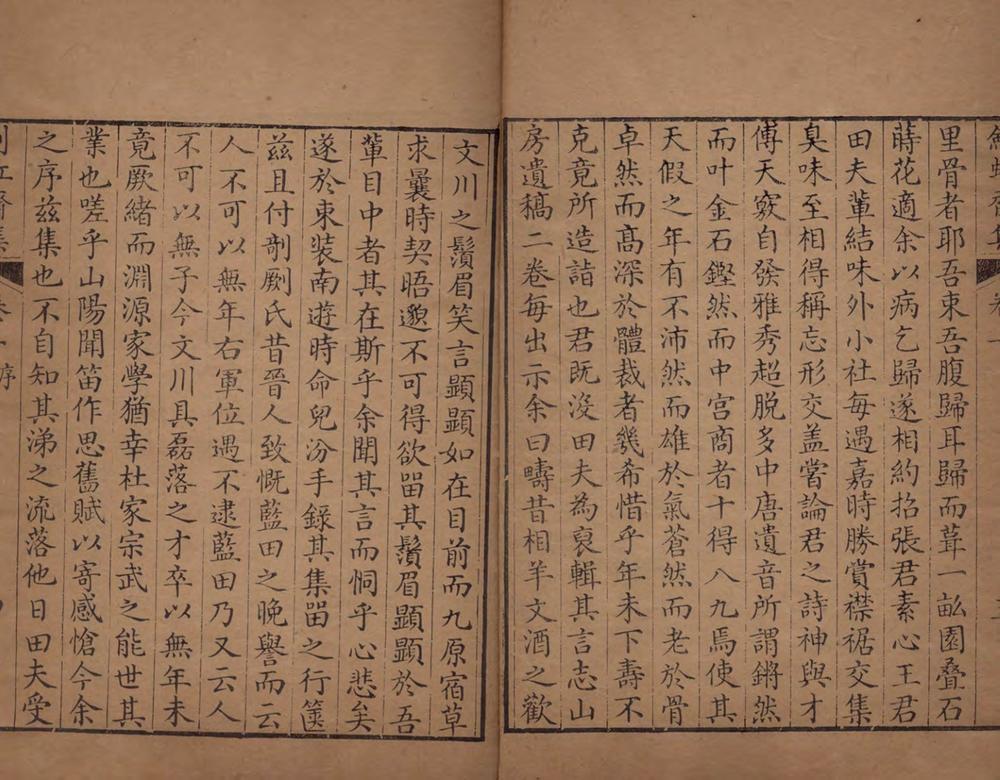 里骨者耶吾束吾腹歸耳歸而葺一畝園叠石
蒔花適余以病乞歸遂相約招張君素心王君
田夫輩結味外小社每遇嘉時勝賞襟裾交集
臭味至相得稱忘形交盖嘗論君之詩神與才
傅天竅自發雅秀超脫多中唐遺音所謂鏘然
而叶金石鏗然而中宮商者十得八九焉使其
天假之年有不沛然而雄於氣蒼然而老於骨
卓然而高深於體裁者幾希惜乎年未下壽不
克竟所造詣也君既沒田夫為裒輯其言志山
房遺稿二卷每出示余曰疇昔相羊文酒之歡
文川之鬚眉笑言顯顯如在目前而九原宿草
求曩時契晤邈不可得欲畱其鬚眉顯顯於吾
輩目中者其在斯乎余聞其言而恫乎心悲矣
遂於東装南遊時命兒汾手錄其集畱之行篋
兹且付剞劂氏昔晉人致慨藍田之晚譽而云
人不可以無年右軍位遇不逮藍田乃又云人
不可以無子今文川具磊落之才卒以無年未
竟厥緒而淵源家學猶幸杜家宗武之能世其
業也嗟乎山陽聞笛作思舊賦以寄感愴今余
之序兹集也不自知其涕之流落他日田夫受
集 卷一 序